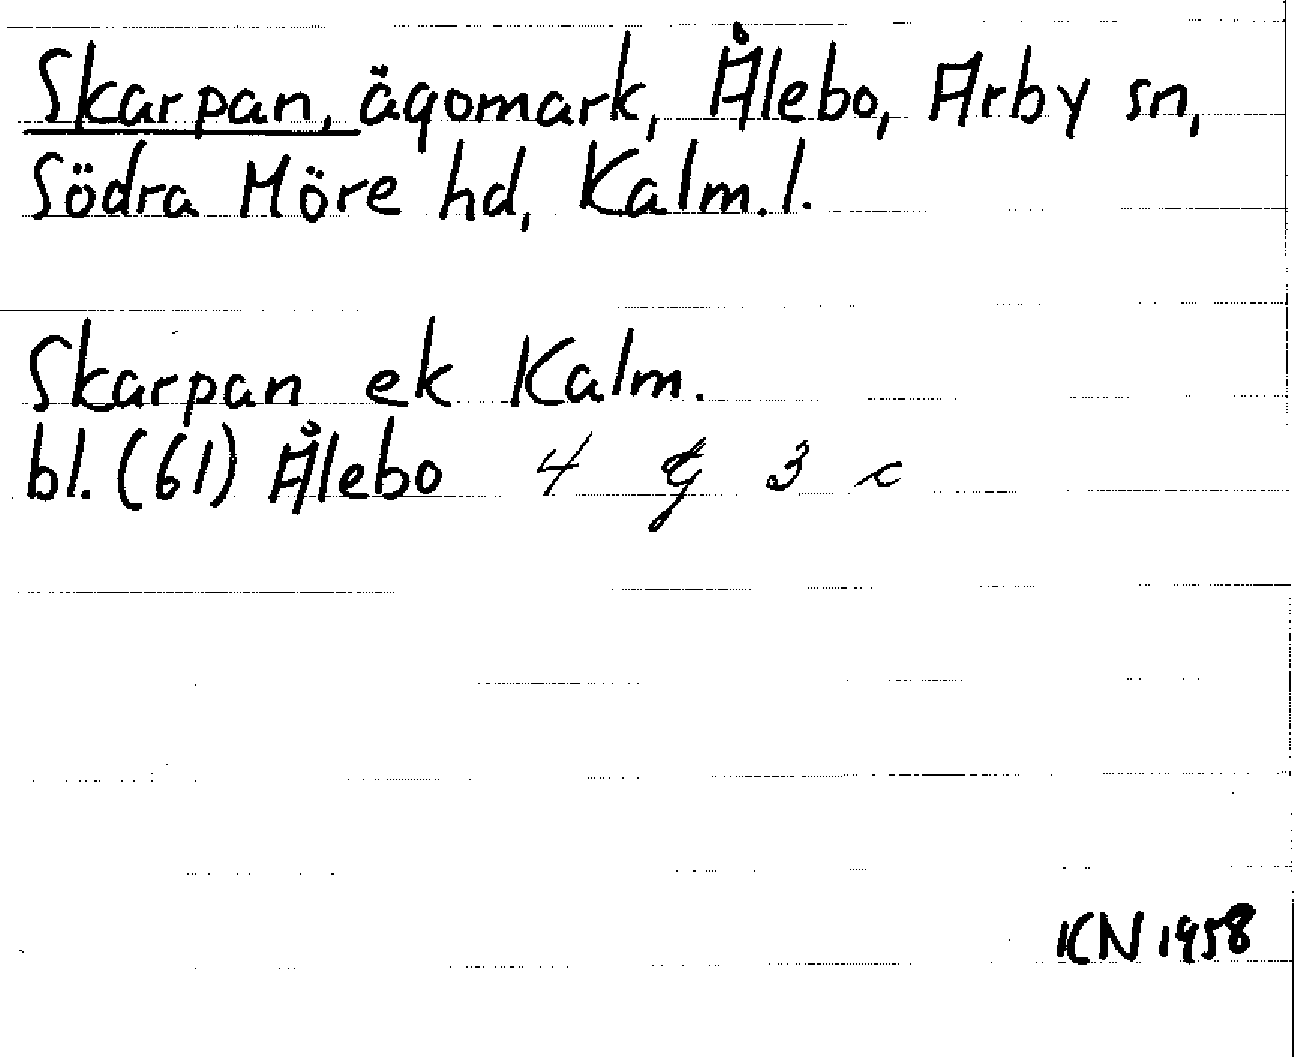 Skarpan, ägomark, Ålebo, Arby sn,
Södra Möre hd, Kalm. l.
Skarpan ek Kalm.
bl. (61) Ålebo 4 g 3 c
KN 1958